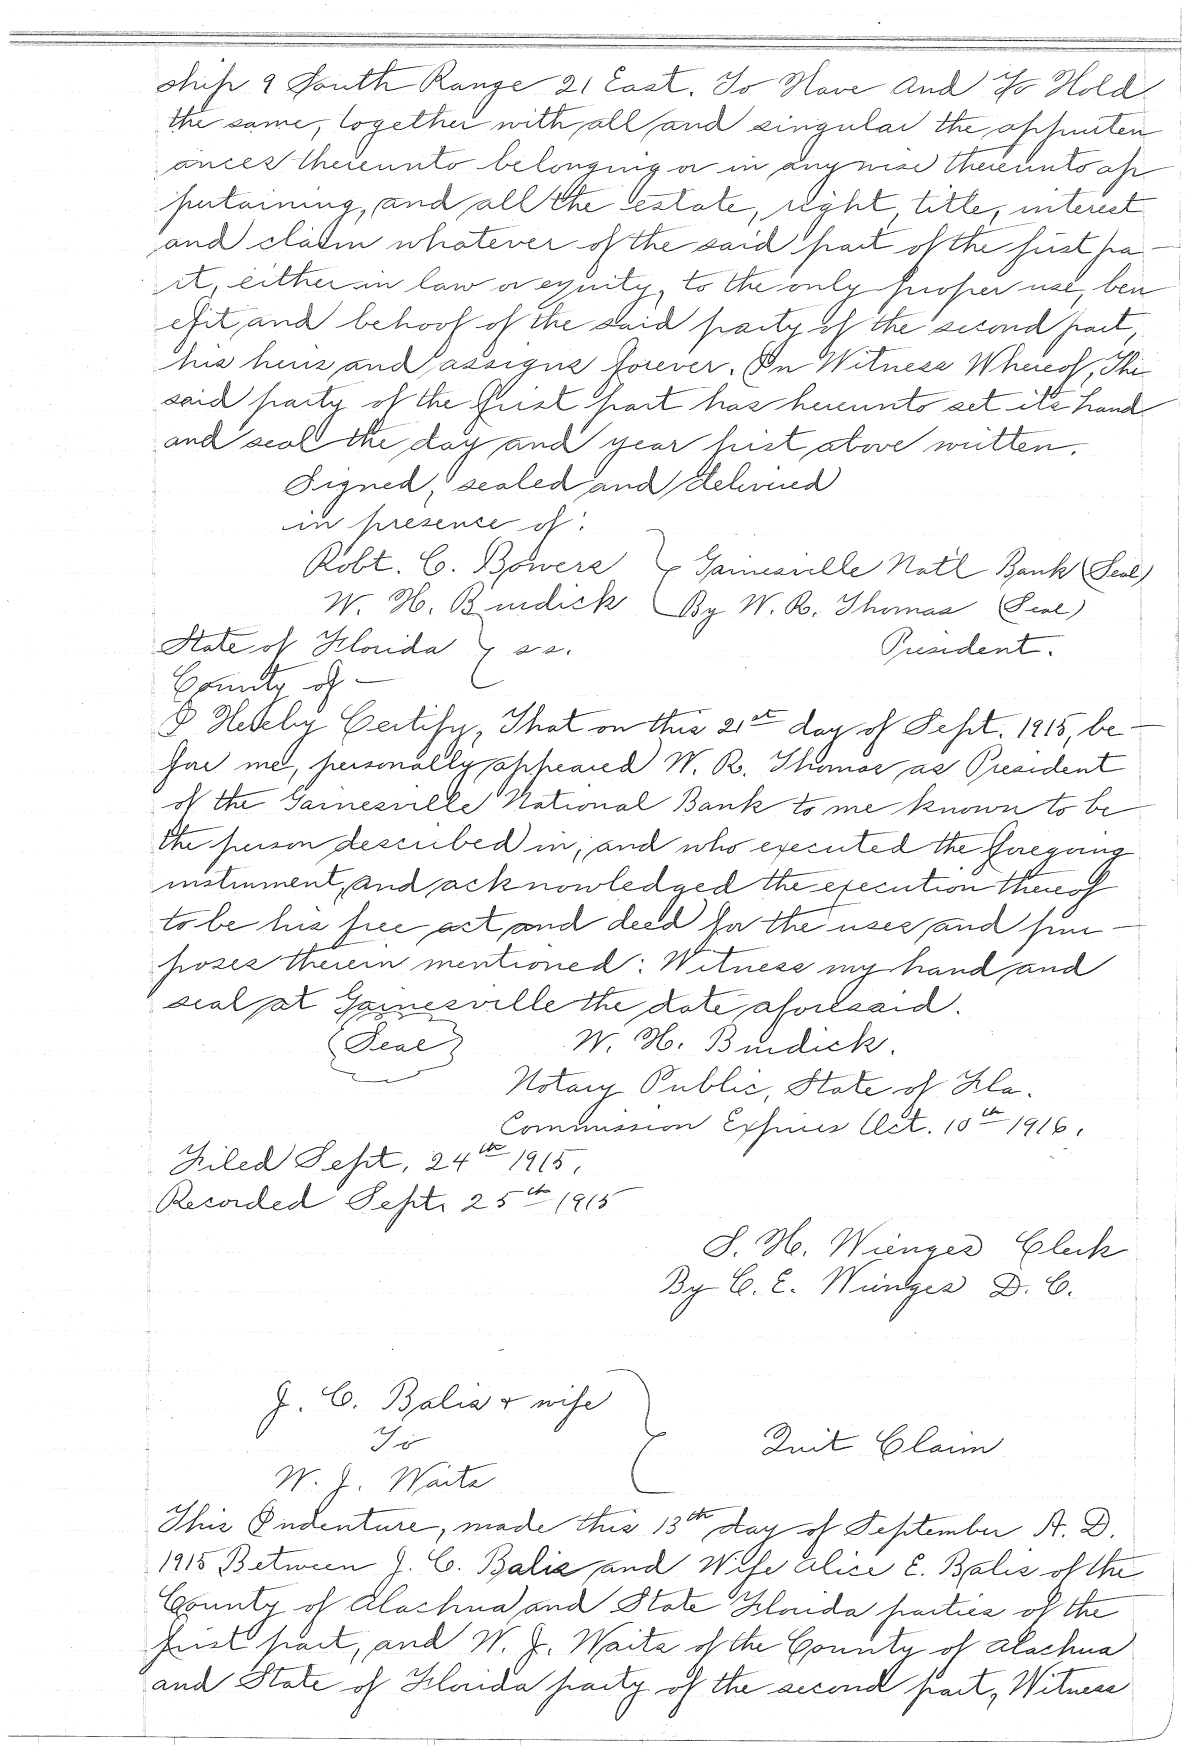 ship 9 South Range 21 East. To Have And To Hold
the same, together with all and singular the appurten
ances thereunto belonging or in anywise thereunto ap
pertaining, and all the estate, right, title, interest
and claim whatever of the said part of the first pa-
rt, either in law or equity, to the only proper use, ben
efit, and behoof of the said party of the second part,
his heirs and assigns forever. In Witness Whereof, The
said party of the first part has hereunto set its hand
and seal the day and year first above written.
Signed, sealed and delivered
in presence of:
Robt. C. Bowers } Gainesville Nat'l Bank (Seal)
W. H. Burdick By W. R. Thomas (Seal)
State of Florida } ss. President.
County of —
I Hereby Certify, That on this 21st day of Sept. 1915, be-
fore me, personally appeared W. R. Thomas as President
of the Gainesville National Bank to me known to be
the person described in, and who executed the foregoing
instrument, and acknowledged the execution thereof
to be his free act and deed for the uses and pur-
poses therein mentioned: Witness my hand and
seal at Gainesville the date aforesaid.
(Seal) W. H. Burdick.
Notary Public, State of Fla.
Commission Expires Oct. 10th 1916.
Filed Sept. 24th 1915.
Recorded Sept. 25th 1915
S. H. Wienges Clerk
By C. E. Wienges D. C.
J. C. Balis & wife
To } Quit Claim
W. J. Waits
This Indenture, made this 13th day of September A. D.
1915 Between J. C. Balis and Wife Alice E. Balis of the
County of Alachua and State Florida parties of the
first part, and W. J. Waits of the County of Alachua
and State of Florida party of the second part, Witness